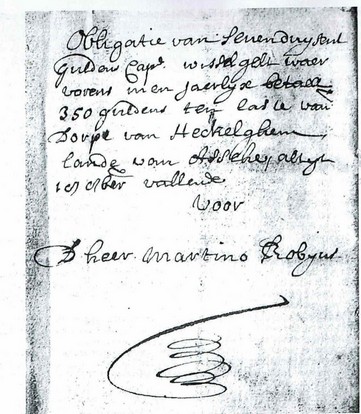 Obligatie van Sevenduysent
Gulden Cap.l wisselgelt waer
vorens men jaerlyx betaelt
350 guldens ten laste van
Dorpe van Heckelghem,
lande van Assche, altyt
8ber vallende
Voor
D heer Martino Robyns